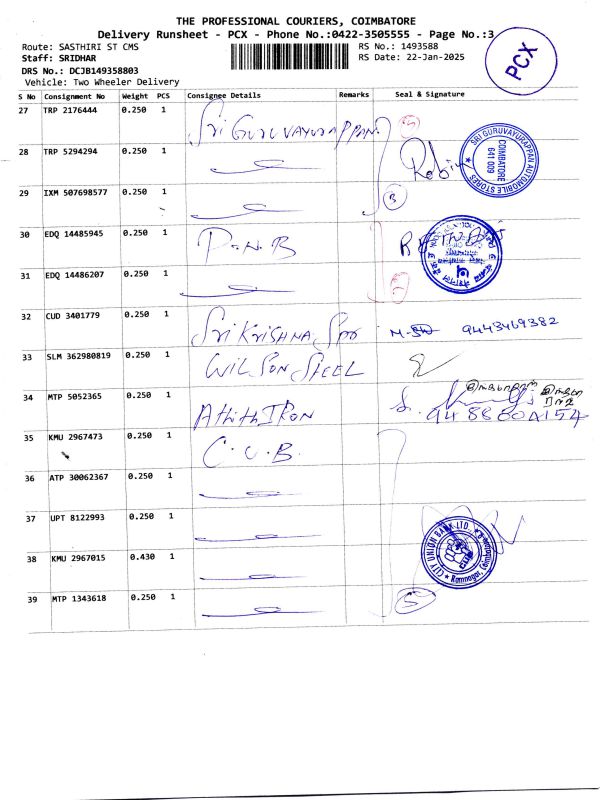 THE PROFESSIONAL COURIERS, COIMBATORE
Delivery Runsheet - PCX - Phone No.:0422-3505555 - Page No.:3
Route: SASTHIRI ST CMS
RS No.: 1493588
Staff: SRIDHAR
RS Date: 22-Jan-2025
DRS No.: DCJB149358803
Vehicle: Two Wheeler Delivery
PCX
S No Consignment No Weight PCS Consignee Details Remarks Seal & Signature
27 TRP 2176444 0.250 1 Sri GURUVAYURAPPAN
28 TRP 5294294 0.250 1 Robin
SRI GURUVAYURAPPAN AUTOMOBILE STORES
COIMBATORE
641 009
29 IXM 507698577 0.250 1
30 EDQ 14485945 0.250 1 P.N.B
31 EDQ 14486207 0.250 1
32 CUD 3401779 0.250 1 Sri Krishna 9443469382
33 SLM 362980819 0.250 1 WILSON STEEL
34 MTP 5052365 0.250 1 Athith IRON
35 KMU 2967473 0.250 1 C.U.B.
36 ATP 30062367 0.250 1
37 UPT 8122993 0.250 1
38 KMU 2967015 0.430 1
CITY UNION BANK LTD.,
Ramnagar, Coimbatore
39 MTP 1343618 0.250 1 5